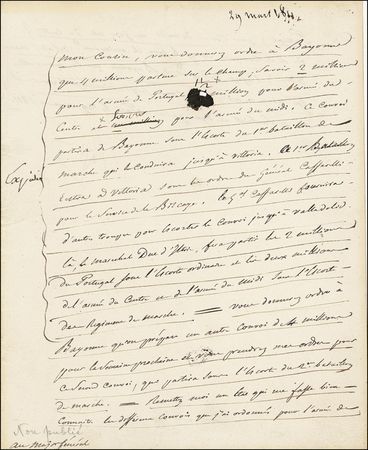 29 mars 181
mon Cousin, vous donnerez ordre à Bayonne
que 4 millions partent sur le champ, savoir 2 millions
pour l'armée de Portugal 1 1/2 million pour l'armée du
Centre et pour l'armée du midi. Ce Convoi
partira de Bayonne sous l'escorte du 1er bataillon de
marche qui le conduira jusqu'à vittoria. Ce 1er Bataillon
restera à vittoria sous les ordres du Général Caffarelli
pour le service de la Biscaye. Le Gal Caffarelli fournira
d'autres troupes pour escorter le Convoi jusqu'à valladolid.
là le marechal Duc d'Istrie, fera partir les 2 millions
du Portugal sous l'escorte ordinaire et les deux millions
de l'armée du Centre et de l'armée du midi sous l'escorte
des Régimens de marche. — vous donnerez ordre à
Bayonne qu'on prépare un autre convoi de 4 millions
pour la Semaine prochaine et vous prendrez mes ordres pour
ce Second Convoi, qui partira sous l'escorte du 2me bataillon
de marche. — Remettez moi un état qui me fasse bien
connaître les differens convois que j'ai ordonnés pour l'armée de
Non publié
au Major Général